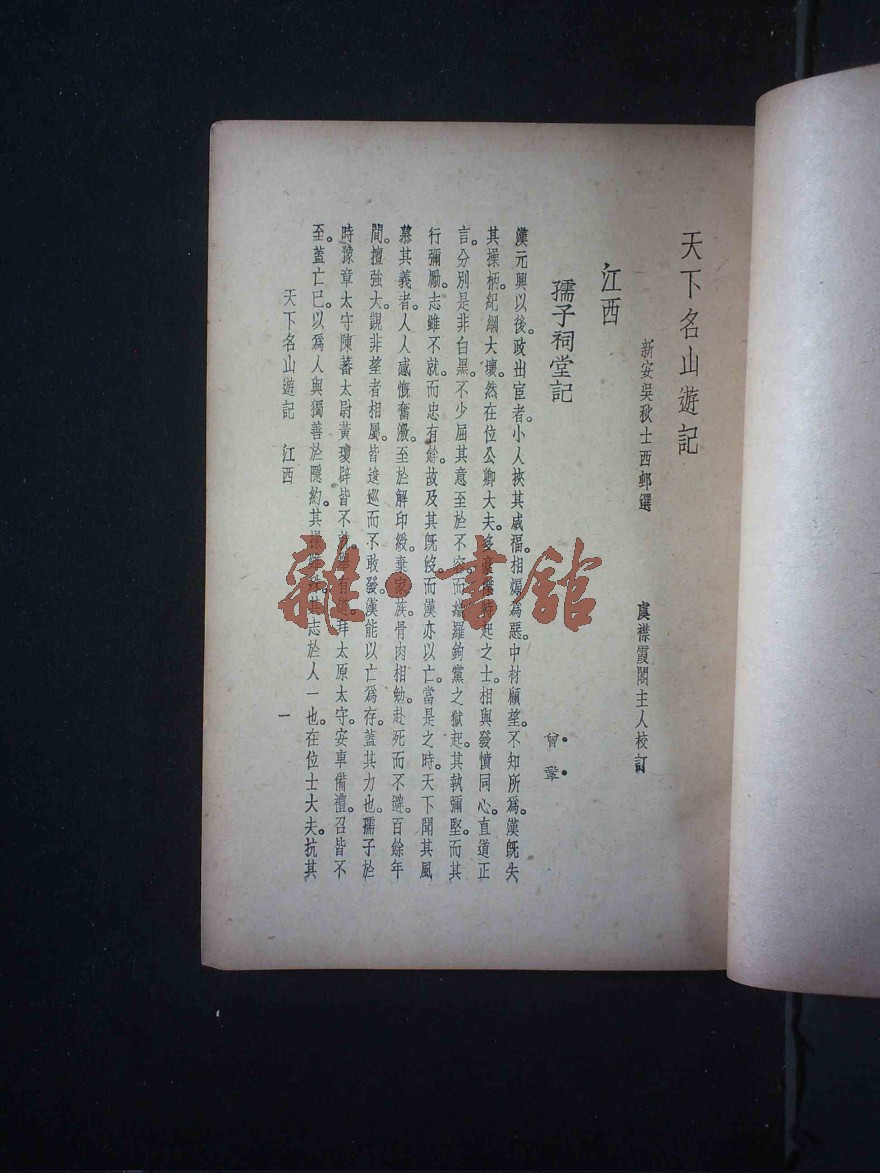 天下名山遊記
新安吳秋士西邨選 虞襟霞閣主人校訂
江西
孺子祠堂記
曾鞏
漢元興以後。政出宦者。小人挾其威福。相煽爲惡。中材顧望。不知所爲。漢旣失
其操柄。紀綱大壞。然在位公卿大夫。多豪傑特起之士。相與發憤同心。直道正
言。分別是非白黑。不少屈其意。至於不容。而織羅鉤黨之獄起。其執彌堅。而其
行彌勵。志雖不就。而忠有餘。故及其旣歿。而漢亦以亡。當是之時。天下聞其風
慕其義者。人人感慨奮激。至於解印綬。棄家族。骨肉相勉。赴死而不避。百餘年
間。擅強大。覬非望者相屬。皆逡巡而不敢發。漢能以亡爲存。蓋其力也。孺子於
時。豫章太守陳蕃太尉黃瓊辟皆不就。舉有道。拜太原太守。安車備禮。召皆不
至。蓋亡已。以爲人與獨善於隱約。其操雖殊。其志於人一也。在位士大夫。抗其
天下名山遊記 江西 一
雜・書館